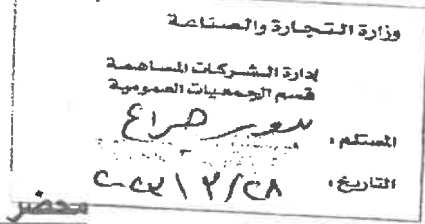 وزارة التجارة والصناعة
إدارة الشركات المساهمة
قسم الجمعيات العمومية
المستلم :
التاريخ :
محضر